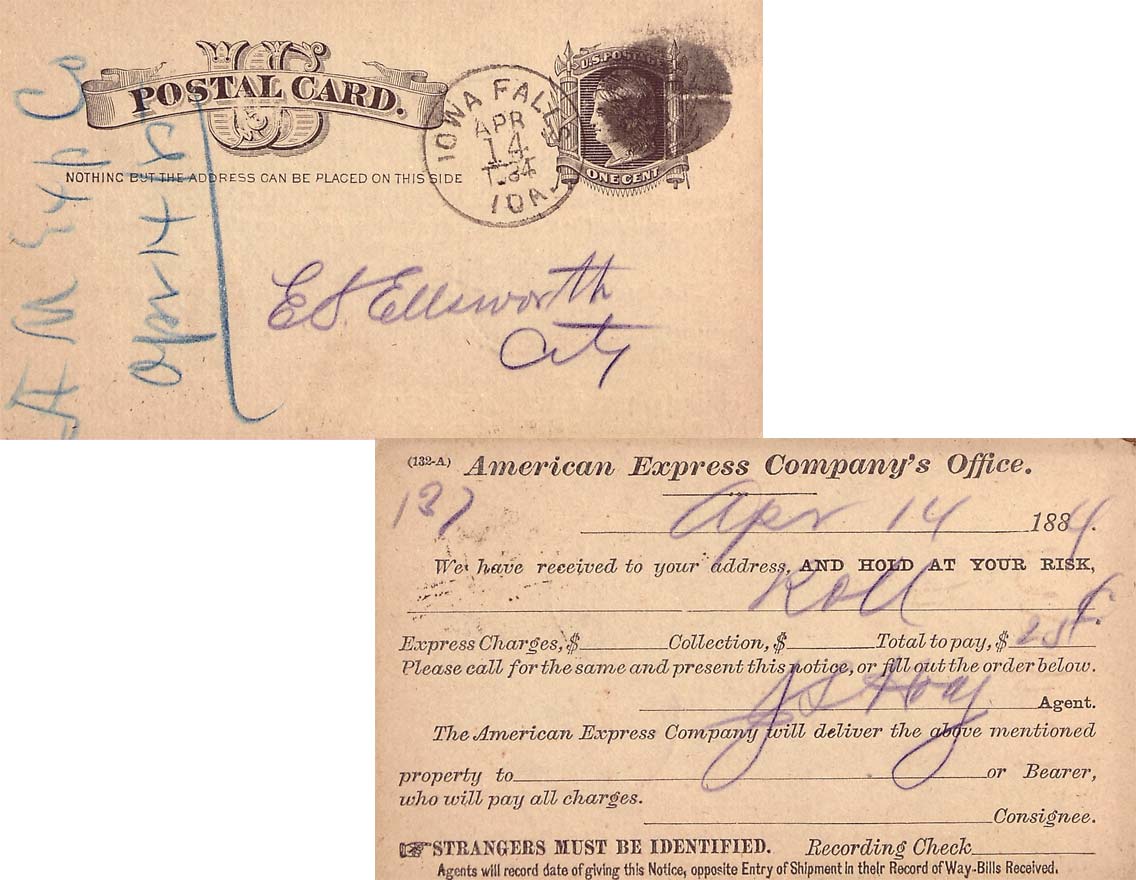 POSTAL CARD.
U.S. POSTAGE
ONE CENT
NOTHING BUT THE ADDRESS CAN BE PLACED ON THIS SIDE
IOWA FALLS
APR
14
IOA.
Am Exp Co
Apr 14
E S Ellsworth
City
(132-A) American Express Company's Office.
137
Apr 14 1884.
We have received to your address, AND HOLD AT YOUR RISK,
Roll
Express Charges, $ Collection, $ Total to pay, $ 25
Please call for the same and present this notice, or fill out the order below.
J S Hoag Agent.
The American Express Company will deliver the above mentioned
property to or Bearer,
who will pay all charges.
Consignee.
STRANGERS MUST BE IDENTIFIED. Recording Check
Agents will record date of giving this Notice, opposite Entry of Shipment in their Record of Way-Bills Received.